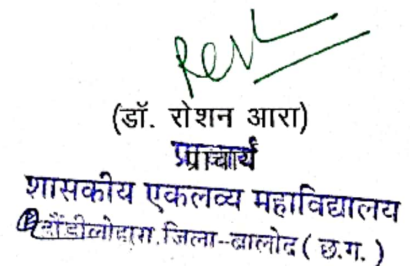 (डॉ. रोशन आरा)
प्राचार्य
शासकीय एकलव्य महाविद्यालय
डौंडीलोहारा, जिला--बालोद ( छ.ग. )